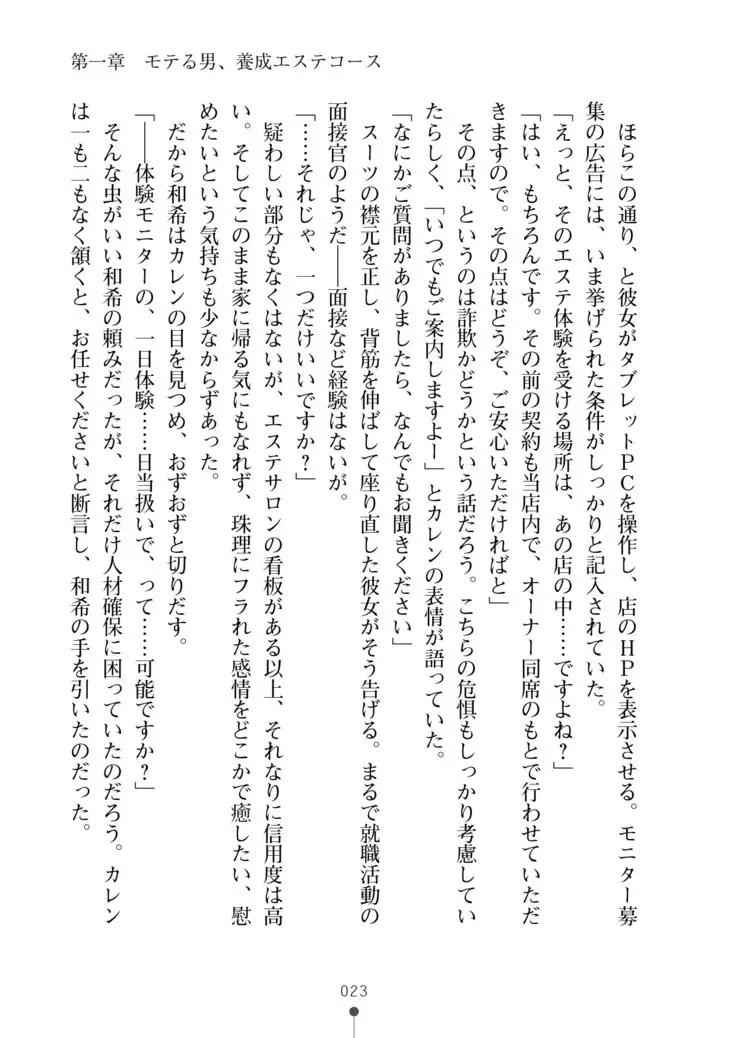 第一章　モテる男、養成エステコース
　ほらこの通り、と彼女がタブレットＰＣを操作し、店のＨＰを表示させる。モニター募
集の広告には、いま挙げられた条件がしっかりと記入されていた。
「えっと、そのエステ体験を受ける場所は、あの店の中……ですよね？」
「はい、もちろんです。その前の契約も当店内で、オーナー同席のもとで行わせていただ
きますので。その点はどうぞ、ご安心いただければと」
　その点、というのは詐欺かどうかという話だろう。こちらの危惧もしっかり考慮してい
たらしく、「いつでもご案内しますよー」とカレンの表情が語っていた。
「なにかご質問がありましたら、なんでもお聞きください」
　スーツの襟元を正し、背筋を伸ばして座り直した彼女がそう告げる。まるで就職活動の
面接官のようだ――面接など経験はないが。
「……それじゃ、一つだけいいですか？」
　疑わしい部分もなくはないが、エステサロンの看板がある以上、それなりに信用度は高
い。そしてこのまま家に帰る気にもなれず、珠理にフラれた感情をどこかで癒したい、慰
めたいという気持ちも少なからずあった。
　だから和希はカレンの目を見つめ、おずおずと切りだす。
「――体験モニターの、一日体験……日当扱いで、って……可能ですか？」
　そんな虫がいい和希の頼みだったが、それだけ人材確保に困っていたのだろう。カレン
は一も二もなく頷くと、お任せくださいと断言し、和希の手を引いたのだった。
023